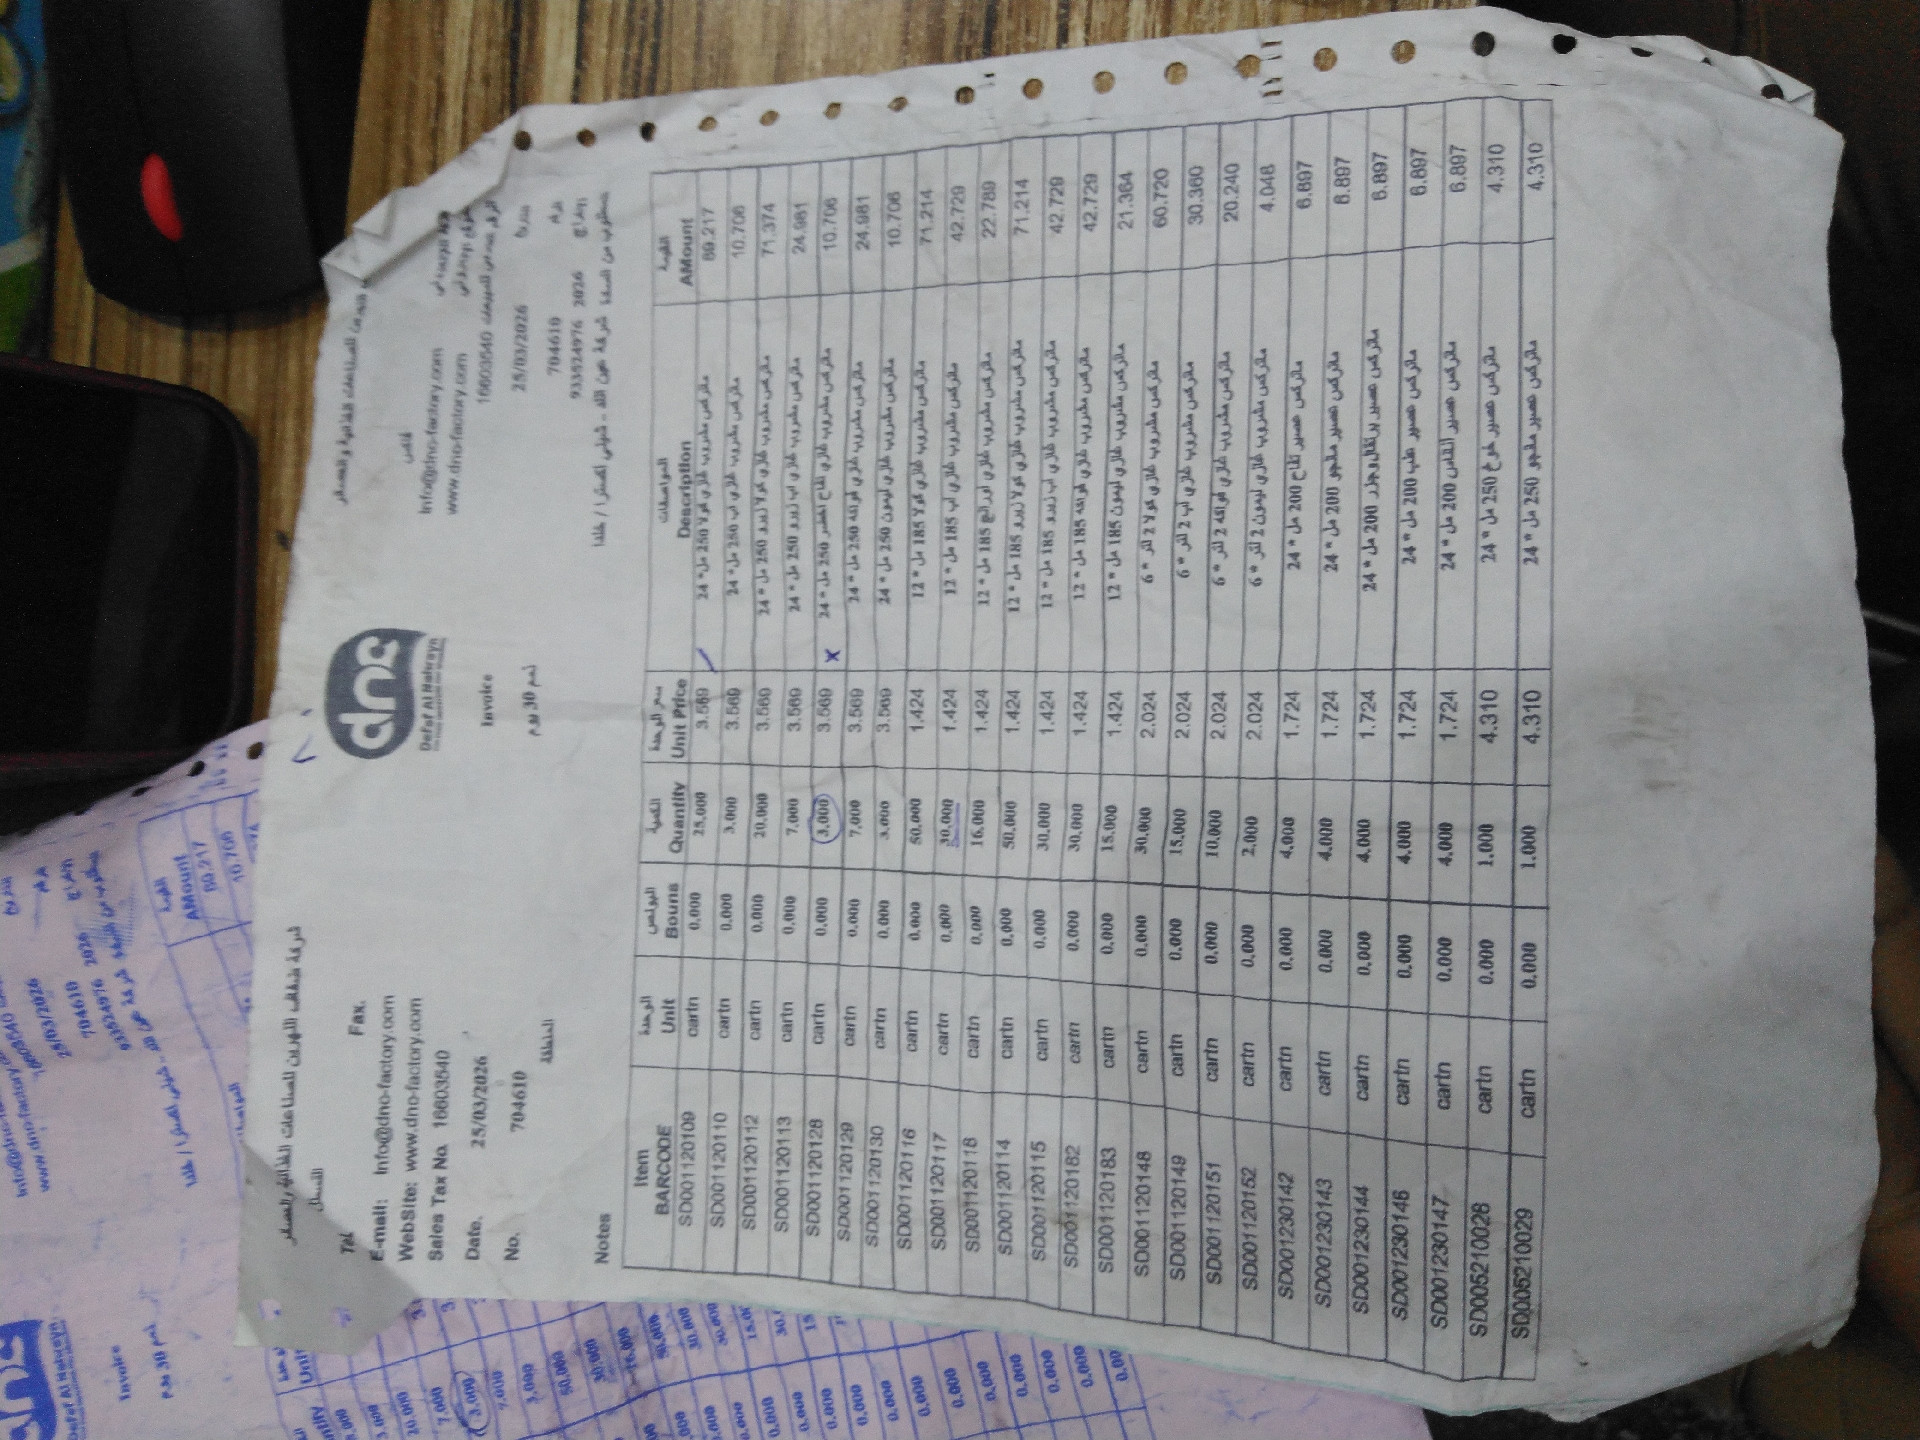 شركة ضفاف النهرين للصناعات الغذائية والعصائر
Tel
Fax.
E-mail: Info@dno-factory.com
WebSite: www.dno-factory.com
Sales Tax No. 16603540
Date. 25/03/2026
No. 704610
Notes
dnc
Defaf Al Nahrayn
Invoice
ذمم 30 يوم
فاكس
Info@dno-factory.com
www.dno-factory.com
16603540
25/03/2026
704610
933524976 2026
Item BARCODE | الوحدة Unit | البونص Bouns | الكمية Quantity | سعر الوحدة Unit Price | المواصفات Description | القيمة AMount
SD001120109 cartn 0.000 25.000 3.569 ماتركس مشروب غازي كولا 250 مل * 24 89.217
SD001120110 cartn 0.000 3.000 3.569 ماتركس مشروب غازي اب 250 مل * 24 10.706
SD001120112 cartn 0.000 20.000 3.569 ماتركس مشروب غازي كولا زيرو 250 مل * 24 71.374
SD001120113 cartn 0.000 7.000 3.569 ماتركس مشروب غازي اب زيرو 250 مل * 24 24.981
SD001120128 cartn 0.000 3.000 3.569 x ماتركس مشروب غازي تفاح اخضر 250 مل * 24 10.706
SD001120129 cartn 0.000 7.000 3.569 ماتركس مشروب غازي فواكه 250 مل * 24 24.981
SD001120130 cartn 0.000 3.000 3.569 ماتركس مشروب غازي ليمون 250 مل * 24 10.706
SD001120116 cartn 0.000 50.000 1.424 ماتركس مشروب غازي كولا 185 مل * 12 71.214
SD001120117 cartn 0.000 30.000 1.424 ماتركس مشروب غازي اب 185 مل * 12 42.729
SD001120118 cartn 0.000 16.000 1.424 ماتركس مشروب غازي اورانج 185 مل * 12 22.789
SD001120114 cartn 0.000 50.000 1.424 ماتركس مشروب غازي كولا زيرو 185 مل * 12 71.214
SD001120115 cartn 0.000 30.000 1.424 ماتركس مشروب غازي اب زيرو 185 مل * 12 42.729
SD001120182 cartn 0.000 30.000 1.424 ماتركس مشروب غازي فواكه 185 مل * 12 42.729
SD001120183 cartn 0.000 15.000 1.424 ماتركس مشروب غازي ليمون 185 مل * 12 21.364
SD001120148 cartn 0.000 30.000 2.024 ماتركس مشروب غازي كولا 2 لتر * 6 60.720
SD001120149 cartn 0.000 15.000 2.024 ماتركس مشروب غازي اب 2 لتر * 6 30.360
SD001120151 cartn 0.000 10.000 2.024 ماتركس مشروب غازي فواكه 2 لتر * 6 20.240
SD001120152 cartn 0.000 2.000 2.024 ماتركس مشروب غازي ليمون 2 لتر * 6 4.048
SD001230142 cartn 0.000 4.000 1.724 ماتركس عصير تفاح 200 مل * 24 6.897
SD001230143 cartn 0.000 4.000 1.724 ماتركس عصير مانجو 200 مل * 24 6.897
SD001230144 cartn 0.000 4.000 1.724 ماتركس عصير برتقال وجزر 200 مل * 24 6.897
SD001230146 cartn 0.000 4.000 1.724 ماتركس عصير عنب 200 مل * 24 6.897
SD001230147 cartn 0.000 4.000 1.724 ماتركس عصير اناناس 200 مل * 24 6.897
SD005210028 cartn 0.000 1.000 4.310 ماتركس عصير خوخ 250 مل * 24 4.310
SD005210029 cartn 0.000 1.000 4.310 ماتركس عصير مانجو 250 مل * 24 4.310